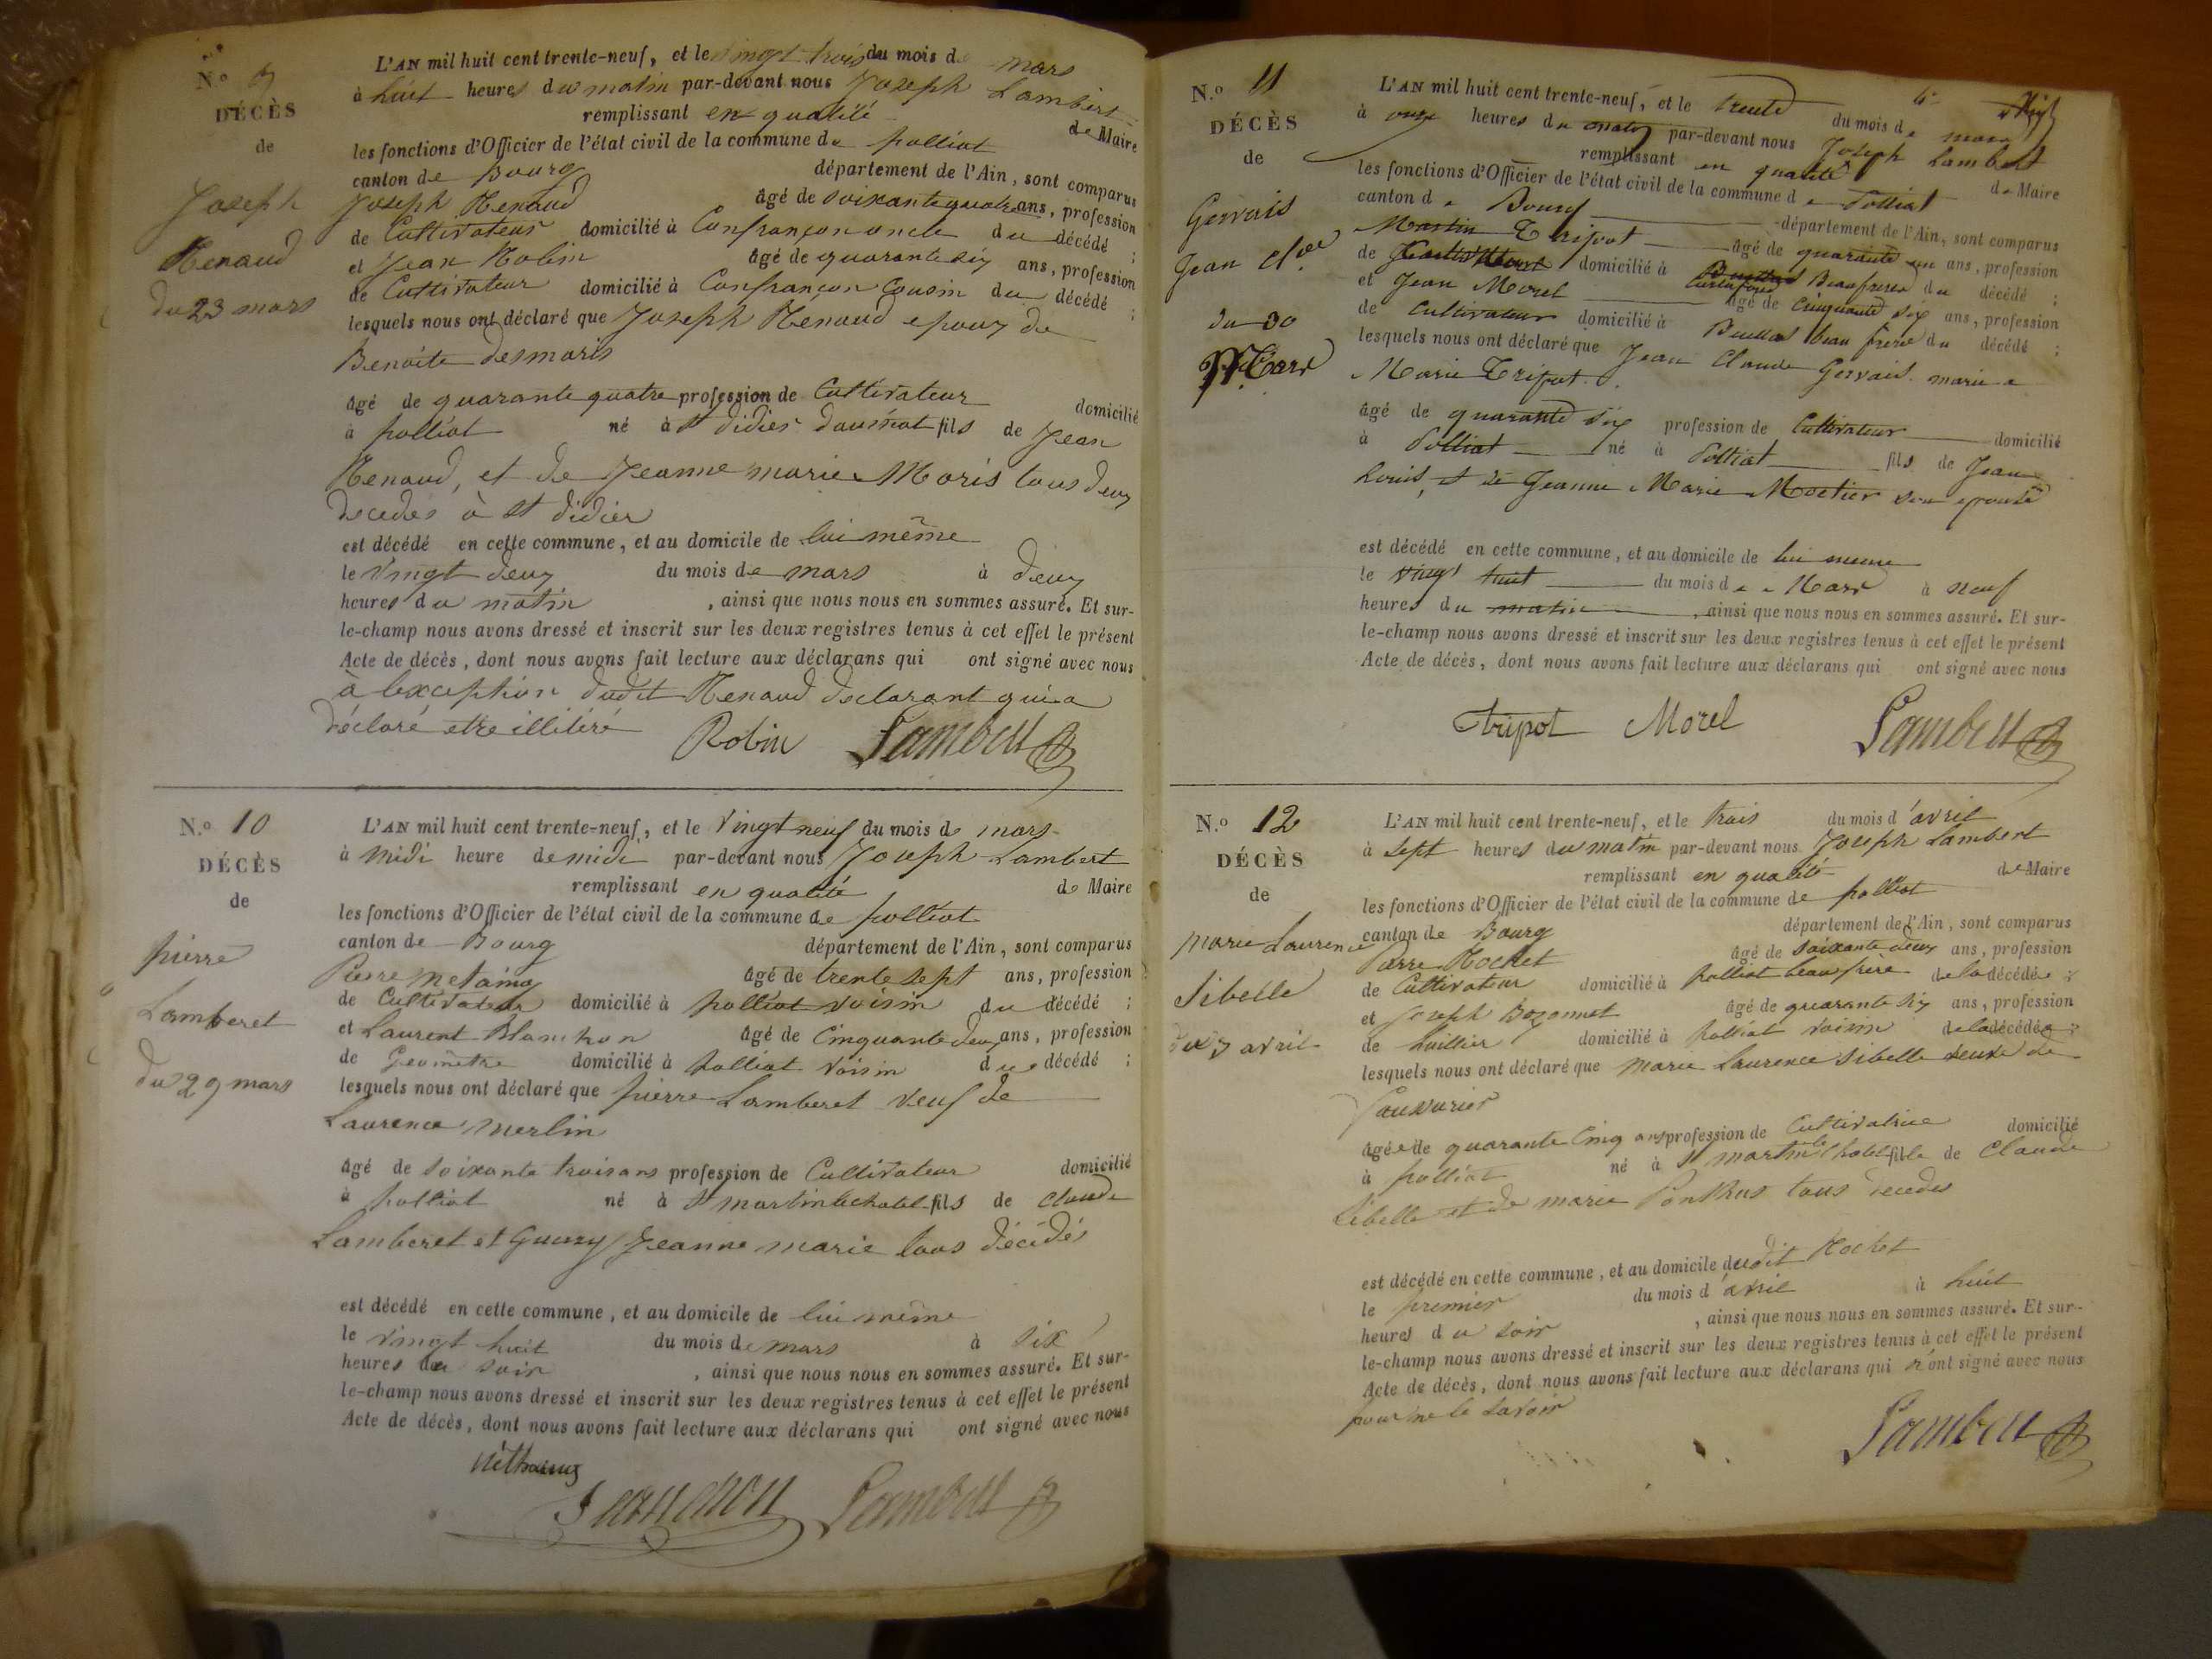 N.o 9
DÉCÈS
de
Joseph
Renaud
du 23 mars
L'AN mil huit cent trente-neuf, et le vingt trois du mois de mars
à huit heures du matin par-devant nous Joseph Lambert
remplissant en qualité de Maire
les fonctions d'Officier de l'état civil de la commune de polliat
canton de Bourg département de l'Ain, sont comparus
Joseph Renaud âgé de soixante quatre ans, profession
de Cultivateur domicilié à Confrançon oncle du décédé ;
et Jean Robin âgé de quarante six ans, profession
de Cultivateur domicilié à Confrançon Cousin du décédé ;
lesquels nous ont déclaré que Joseph Renaud epoux de
Benoite desmaris
âgé de quarante quatre profession de Cultivateur domicilié
à polliat né à st didier daussiat fils de Jean
Renaud, et de Jeanne marie Moris tous deux
decedés à st didier
est décédé en cette commune, et au domicile de lui même
le vingt deux du mois de mars à deux
heures du matin , ainsi que nous nous en sommes assuré. Et sur-
le-champ nous avons dressé et inscrit sur les deux registres tenus à cet effet le présent
Acte de décès, dont nous avons fait lecture aux déclarans qui ont signé avec nous
à lexception dudit Renaud declarant qui a
déclaré etre illitéré Robin Lambert
N.o 10
DÉCÈS
de
pierre
Lamberet
du 29 mars
L'AN mil huit cent trente-neuf, et le vingt neuf du mois de mars
à midi heure de midi par-devant nous Joseph Lambert
remplissant en qualité de Maire
les fonctions d'Officier de l'état civil de la commune de polliat
canton de Bourg département de l'Ain, sont comparus
Pierre metaing âgé de trente sept ans, profession
de Cultivateur domicilié à polliat voisin du décédé ;
et Laurent Blanchon âgé de Cinquante deux ans, profession
de Geomètre domicilié à polliat voisin du décédé ;
lesquels nous ont déclaré que pierre Lamberet veuf de
Laurence merlin
âgé de soixante trois ans profession de Cultivateur domicilié
à polliat né à st martin lechatel fils de Claude
Lamberet et Jeanne marie tous décédés
est décédé en cette commune, et au domicile de lui même
le vingt huit du mois de mars à six
heures du soir , ainsi que nous nous en sommes assuré. Et sur-
le-champ nous avons dressé et inscrit sur les deux registres tenus à cet effet le présent
Acte de décès, dont nous avons fait lecture aux déclarans qui ont signé avec nous
Lambert
N.o 11
DÉCÈS
de
Gervais
Jean Cl.de
du 30
Mars
L'AN mil huit cent trente-neuf, et le trente du mois de mars
à onze heures du matin par-devant nous Joseph Lambert
remplissant en qualité de Maire
les fonctions d'Officier de l'état civil de la commune de Polliat
canton de Bourg département de l'Ain, sont comparus
Martin Tripot âgé de quarante un ans, profession
de domicilié à Beaufrere du décédé ;
et Jean Morel âgé de Cinquante six ans, profession
de Cultivateur domicilié à Buellas beau frere du décédé ;
lesquels nous ont déclaré que Jean Claude Gervais marie a
Marie Tripot.
âgé de quarante six profession de Cultivateur domicilié
à Polliat né à Polliat fils de Jean
Louis, et de Jeanne Marie Moetier son epouse
est décédé en cette commune, et au domicile de lui meme
le vingt huit du mois de Mars à neuf
heures du matin , ainsi que nous nous en sommes assuré. Et sur-
le-champ nous avons dressé et inscrit sur les deux registres tenus à cet effet le présent
Acte de décès, dont nous avons fait lecture aux déclarans qui ont signé avec nous
tripot Morel Lambert
N.o 12
DÉCÈS
de
Marie Laurence
Sibelle
du 3 avril
L'AN mil huit cent trente-neuf, et le trois du mois d'avril
à sept heures du matin par-devant nous Joseph Lambert
remplissant en qualité de Maire
les fonctions d'Officier de l'état civil de la commune de polliat
canton de Bourg département de l'Ain, sont comparus
Pierre Rochet âgé de soixante deux ans, profession
de Cultivateur domicilié à polliat beaufrère de la décédée ;
et Joseph Bozonnet âgé de quarante six ans, profession
de huillier domicilié à polliat voisin de la décédée ;
lesquels nous ont déclaré que marie Laurence Sibelle veuve de
âgée de quarante Cinq ans profession de Cultivatrice domicilié
à polliat né à st martin le Chatel fille de Claude
Sibelle et de marie Ponthus tous decedés
est décédé en cette commune, et au domicile dudit Rochet
le premier du mois d'avril à huit
heures du soir , ainsi que nous nous en sommes assuré. Et sur-
le-champ nous avons dressé et inscrit sur les deux registres tenus à cet effet le présent
Acte de décès, dont nous avons fait lecture aux déclarans qui n'ont signé avec nous
pour ne le savoir
Lambert